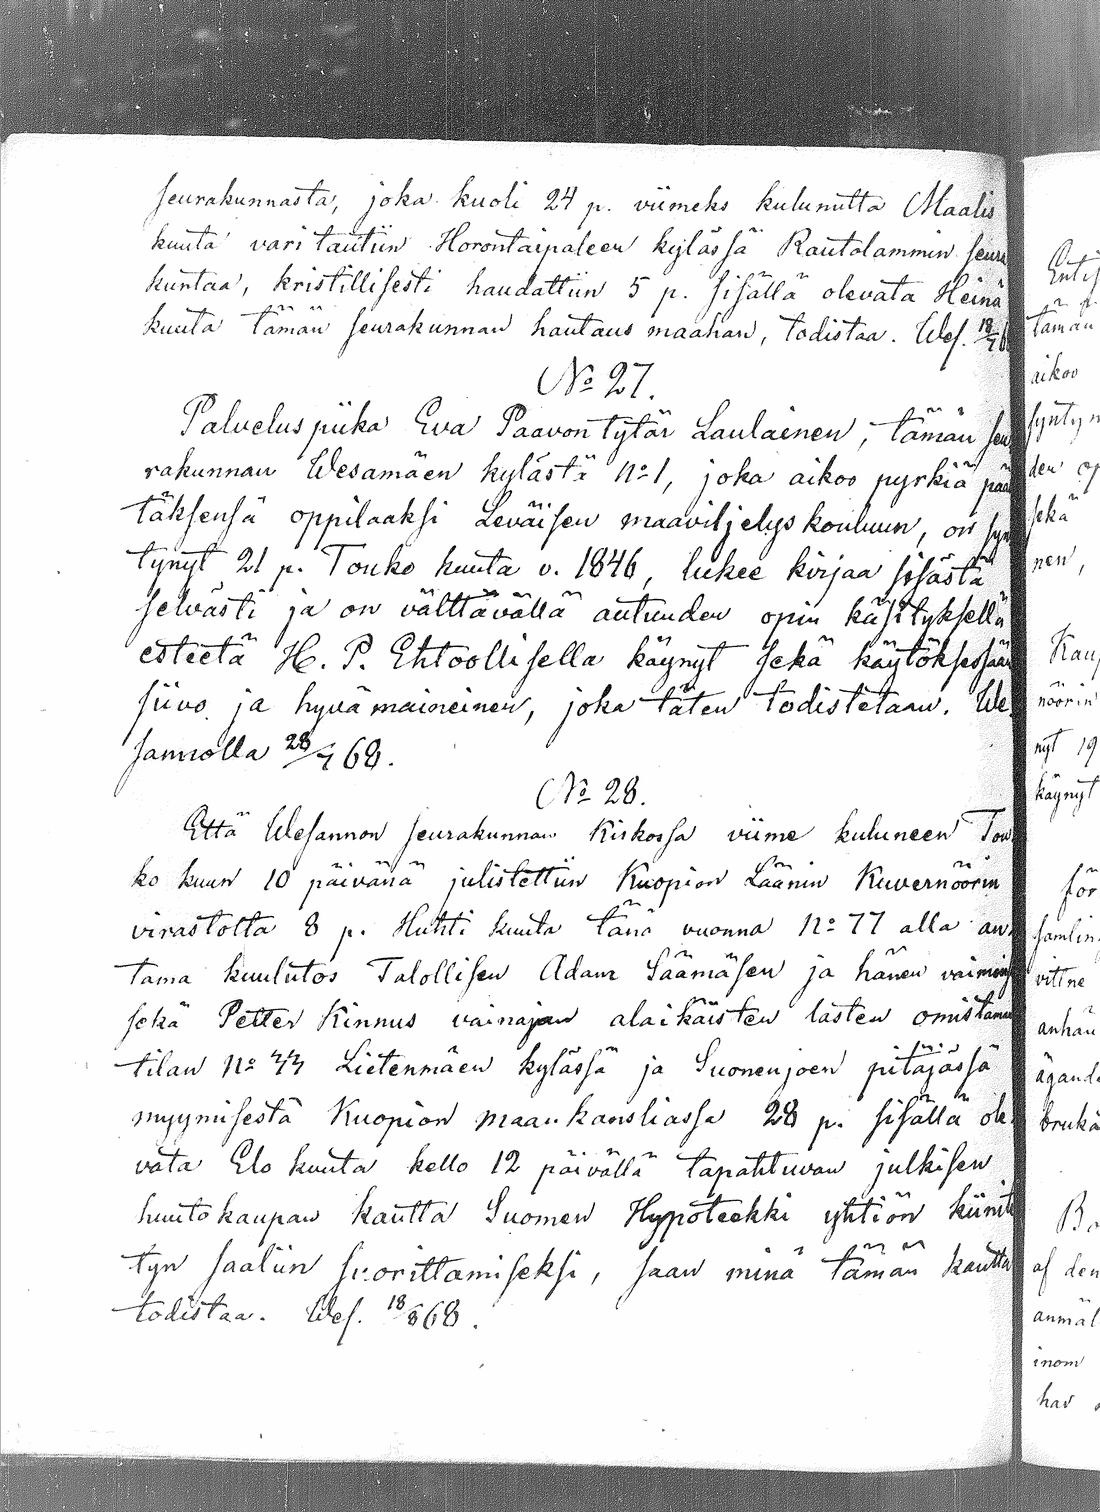 seurakunnasta, joka kuoli 24 p. viimeks kulunutta Maalis
kuuta varitautiin Horontaipaleen kylässä Rautalammin seura
kuntaa, kristillisesti haudattiin 5 p. sisällä olevata Heinä
kuuta tämän seurakunnan hautaus maahan, todistaa. Wes. 18/7 6
No 27.
Palvelus piika Eva Paavontytär Laulainen, tämän seu
rakunnan Wesamäen kylästä No 1, joka aikoo pyrkiä pää
täksensä oppilaaksi Leväisen maaviljelys kouluun, on syn
tynyt 21 p. Touko kuuta v. 1846, lukee kirjaa sisästä
selvästi ja on välttävällä autuuden opin käsityksellä
esteetä H. P. Ehtoollisella käynyt sekä käytöksessään
siivo ja hyvä maineinen, joka täten todistetaan. We
sannolla 28/7 68.
No 28.
Että Wesannon seurakunnan Kirkossa viime kuluneen Tou
ko kuun 10 päivänä julistettiin Kuopion Läänin Kuvernöörin
virastolta 8 p. Huhti kuuta tänä vuonna No 77 alla an
tama kuulutos Talollisen Adam Säämäsen ja hänen vaimonsa
sekä Petter Kinnus vainajan alaikäisten lasten omistaman
tilan No 44 Lietenmäen kylässä ja Suonenjoen pitäjässä
myymisestä Kuopion maankansliassa 28 p. sisällä ole
vata Elo kuuta kello 12 päivällä tapahtuvan julkisen
huutokaupan kautta Suomen Hypoteekki yhtiön kiinit
tyn saaliin suorittamiseksi, saan minä tämän kautta
todistaa. Wes. 18/8 68.
Entis
tämän
aikoo
synty
den op
sekä
nen,
Kaup
nöörin
nyt 19
käynyt
för
samlin
vittne
anhän
ägande
bruka
Bo
af den
anmäl
inom
har